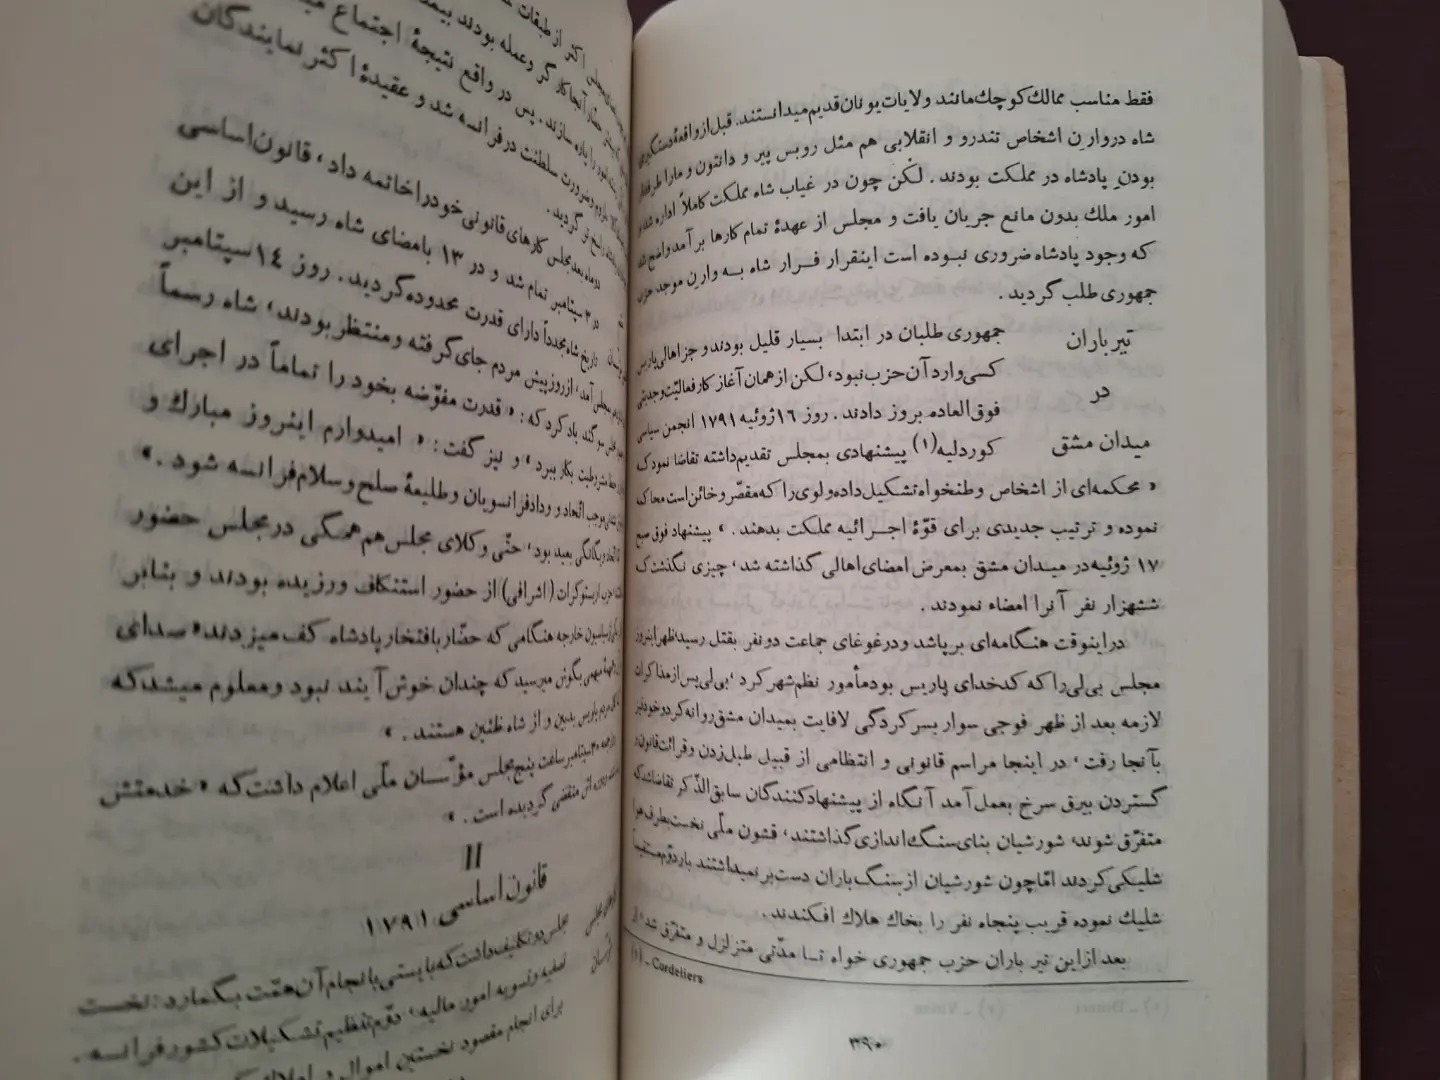 فقط مناسب ممالك کوچك مانند ولایات یونان قدیم میدانستند. قبل از واقعهٔ دستگیری
شاه در وارن اشخاص تندرو و انقلابی هم مثل روبس پیر و دانتون و مارا طرفدار
بودن پادشاه در مملکت بودند. لکن چون در غیاب شاه مملکت کاملاً اداره شد و
امور ملك بدون مانع جریان یافت و مجلس از عهدهٔ تمام کارها برآمد واضح شد
که وجود پادشاه ضروری نبوده است اینقرار فرار شاه به وارن موجد حزب
جمهوری طلب گردید.
تیر باران
در
میدان مشق
جمهوری طلبان در ابتدا بسیار قلیل بودند و جز اهالی پاریس
کسی وارد آن حزب نبود، لکن از همان آغاز کار فعالیّت و جدیتی
فوق العاده بروز دادند. روز ۱۶ ژوئیه ۱۷۹۱ انجمن سیاسی
کوردلیه(۱) پیشنهادی بمجلس تقدیم داشته تقاضا نمود که
« محکمه‌ای از اشخاص وطنخواه تشکیل داده و لوی را که مقصّر و خائن است محاکمه
نموده و ترتیب جدیدی برای قوّهٔ اجرائیه مملکت بدهند. » پیشنهاد فوق صبح
۱۷ ژوئیه در میدان مشق بمعرض امضای اهالی گذاشته شد، چیزی نگذشت که
ششهزار نفر آنرا امضاء نمودند.
در اینوقت هنگامه‌ای برپا شد و در غوغای جماعت دو نفر بقتل رسید ظهر اینروز
مجلس بی‌لی را که کدخدای پاریس بود مأمور نظم شهر کرد، بی‌لی پس از مذاکرات
لازمه بعد از ظهر فوجی سوار بسرکردگی لافایت بمیدان مشق روانه کرد و خود نیز
بآنجا رفت، در اینجا مراسم قانونی و انتظامی از قبیل طبل زدن و قرائت قانون و
گستردن بیرق سرخ بعمل آمد آنگاه از پیشنهاد کنندگان سابق الذّکر تقاضا شد که
متفرّق شوند، شورشیان بنای سنگ اندازی گذاشتند، قشون ملّی نخست بطرف هوا
شلیك کردند امّا چون شورشیان از سنگ باران دست بر نمیداشتند بار دوّم مستقیماً
شلیك نموده قریب پنجاه نفر را بخاك هلاك افکندند.
بعد از این تیر باران حزب جمهوری خواه تا مدّتی متزلزل و متفرّق شد
(۱) - Cordeliers
۳۹۰
اکثر از طبقات
حضّار آنجا کارگر و عمله بودند
را پاره سازند. پس در واقع نتیجهٔ اجتماع
لزوم و ضرورت سلطنت در فرانسه شد و عقیدهٔ اکثر نمایندگان
راسخ تر گردید.
دو ماه بعد مجلس کارهای قانونی خود را خاتمه داد، قانون اساسی
در ۳ سپتامبر تمام شد و در ۱۳ بامضای شاه رسید و از این
تاریخ شاه مجدداً دارای قدرت محدوده گردید. روز ۱۴ سپتامبر
مجلس آمد، از روز پیش مردم جای گرفته و منتظر بودند، شاه رسماً
سوگند یاد کرد که: « قدرت مفوّضه بخود را تماماً در اجرای
مشروطیت بکار ببرد، و نیز گفت: « امیدوارم اینروز مبارك و
موجب اتّحاد و وداد فرانسویان و طلیعهٔ صلح و سلام فرانسه شود. »
اتّحاد و یگانگی بعید بود، حتّی وکلای مجلس هم همگی در مجلس حضور
حزب اریستوکرات (اشرافی) از حضور استنکاف ورزیده بودند و بنابر
خارجه هنگامی که حضّار بافتخار پادشاه کف میزدند « صدای
مبهمی بگوش میرسید که چندان خوش آیند نبود و معلوم میشد که
مردم پاریس بدبین و از شاه ظنین هستند. »
۳۰ سپتامبر ساعت پنج مجلس مؤسّسان ملّی اعلام داشت که « خدمتش
منقضی گردیده است. »
II
قانون اساسی ۱۷۹۱
مجلس دو تکلیف داشت که بایستی بانجام آن همّت بگمارد: نخست
تصفیه و تسویه امور مالیه، دوّم تنظیم تشکیلات کشور فرانسه.
برای انجام مقصود نخستین اموال و املاك